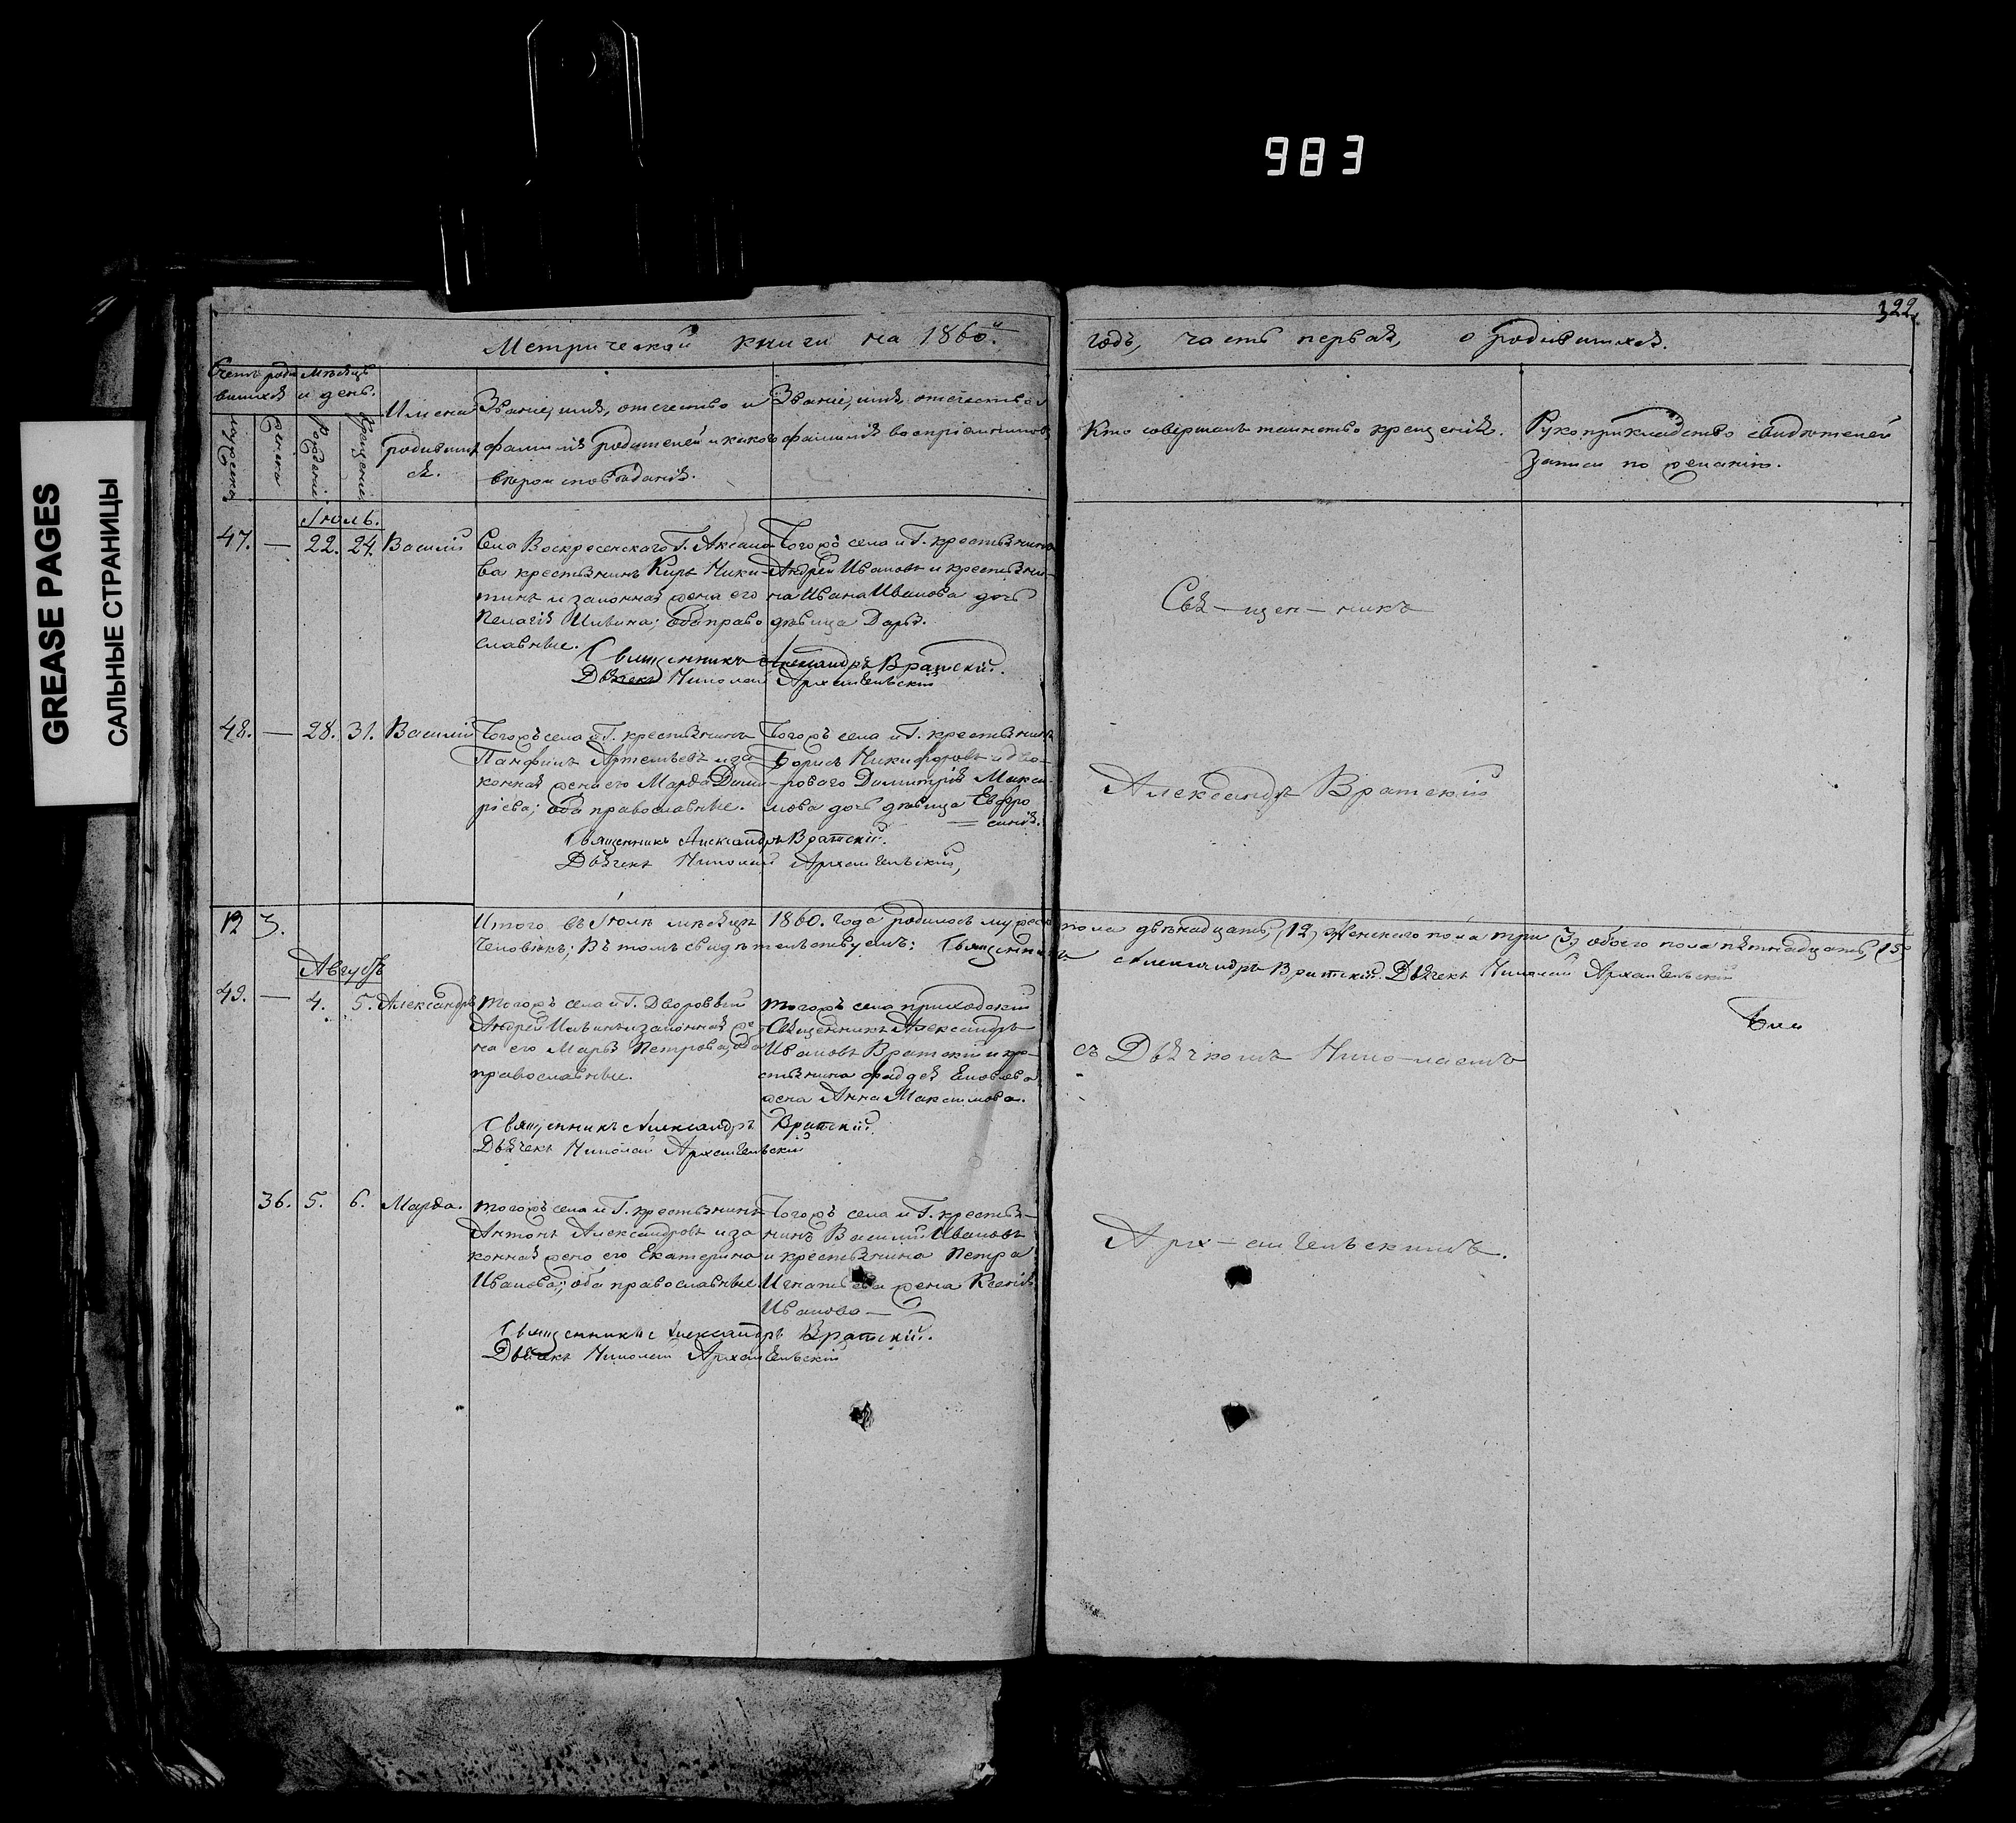 983
GREASE PAGES
САЛЬНЫЕ СТРАНИЦЫ
322
Метрической книги на 1860й
годъ, часть первая, о родившихся.
Счетъ роди
вшихся
Мѣсяцъ
и день.
мужеска
женска
Рожденіе
Крещеніе
Имена
родивших
ся.
Званіе, имя, отечество и
фамилія родителей и какого
вѣроисповѣданія.
Званіе, имя, отечество и
фамилія воспріемниковъ
Кто совершалъ таинство крещенія.
Рукоприкладство свидѣтелей
записи по желанію.
Іюль.
47. — 22. 24. Василій
Села Воскресенскаго Г. Аксако
ва крестьянинъ Киръ Ники-
тинъ и законная жена его
Пелагія Ильина; оба право
славные.
Тогожъ села и Г. крестьянинъ
Андрей Ивановъ и крестьяни-
на Ивана Иванова дочь
дѣвица Дарья.
Священникъ Александръ Вратскій.
Дьячекъ Николай Архангельскій
Свя-щен-никъ
48. — 28. 31. Василій
Тогожъ села и Г. крестьянинъ
Панфилъ Артемьевъ и за
конная жена его Марфа Дими-
ріева; оба православные.
Тогожъ села и Г. крестьянинъ
Борисъ Никифоровъ и дво-
роваго Димитрія Макси-
мова дочь дѣвица Евфро
синія.
Священникъ Александръ Вратскій.
Дьячекъ Николай Архангельскій,
Александръ Вратскій
12 3.
Итого въ Іюлѣ мѣсяцѣ 1860. года родилось мужеска пола двѣнадцать, (12) Женскаго пола три (3) обоего пола пятнадцать (15
человѣкъ; Въ томъ свидѣтельствуемъ: Священникъ Александръ Вратскій. Дьячекъ Николай Архангельскій
Августъ
49. — 4. 5. Александръ
тогожъ села и Г. Дворовый
Андрей Ильинъ и законная же
на его Марья Петрова, оба
православные.
тогожъ села приходскій
Священникъ Александръ
Ивановъ Вратскій и кре-
стьянина Фаддея Яковлева
жена Анна Максимова.
Священникъ Александръ Вратскій.
Дьячекъ Николай Архангельскій
съ Дьячкомъ Нико-лаемъ
36. 5. 6. Марфа.
тогожъ села и Г. крестьянинъ
Антонъ Александровъ и за
конная жена его Екатерина
Иванова; оба православные.
Тогожъ села и Г. крестья-
нинъ Василій Ивановъ
и крестьянина Петра
Игнатьева жена Ксенія
Иванова —
Священникъ Александръ Вратскій.
Дьячекъ Николай Архангельскій
Арх-ангельскимъ.